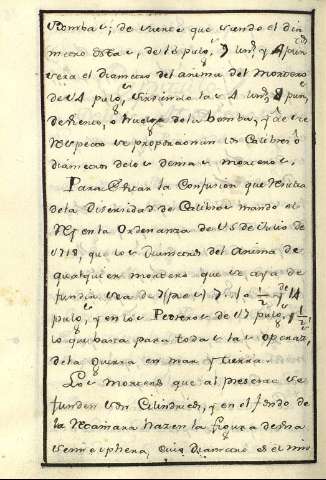 Bombas; de suerte que siendo el dia
metro de esta, de 16 pulgs, 7 lins y 4 pun
sera el diametro del anima del Mortero
de 14 pulgs, las 4 lins 8 puns
de viento, ò huelgo de la bomba, y à este
respecto se proporcionan los Calibres ò
diametros de los demas morteros.
Para Evitar la Confusion que resulta
de la diversidad de Calibres mando el
Rey en la Ordenanza de 15 de Julio de
1718, que los diametros del Anima de
qualquier mortero que se aya de
fundir sea de 7 1/2
pulgs, y en los Pedreros de 15 pulgs, y 1/2,
lo que basta para todas las operas
de la Guerra en mar y tierra.
Los Morteros que al presente se
funden son Cilindricos, y en el fondo de
la Recamara hazen la figura de una
semiesphera, cuio diametro es el mis